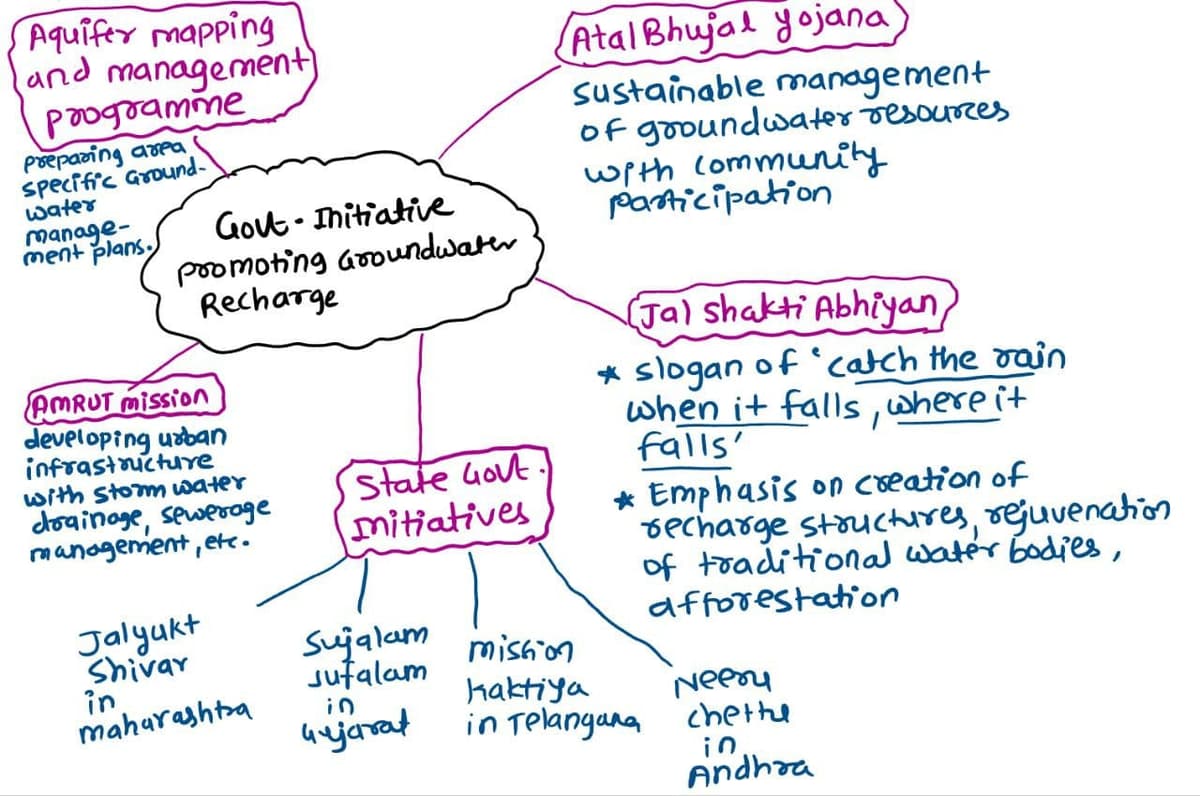 Aquifer mapping
and management
programme
preparing area
specific Ground-
water
manage-
ment plans.
Govt. Initiative
promoting Groundwater
Recharge
Atal Bhujal yojana
sustainable management
of groundwater resources
with community
participation
Jal Shakti Abhiyan
* slogan of 'catch the rain
when it falls, where it
falls'
* Emphasis on creation of
recharge structures, rejuvenation
of traditional water bodies,
afforestation
AMRUT mission
developing urban
infrastructure
with storm water
drainage, sewerage
management, etc.
State Govt.
initiatives
Jalyukt
Shivar
in
maharashtra
Sujalam
sufalam
in
Gujarat
mission
kaktiya
in Telangana
Neeru
chettu
in
Andhra